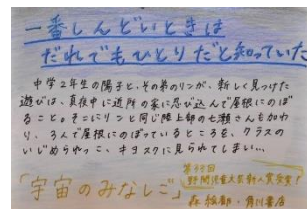 一番しんどいときは
だれでもひとりだと知っていた
中学2年生の陽子と、その弟のリンが、新しく見つけた
遊びは、真夜中に近所の家に忍び込んで屋根にのぼ
ること。そこにリンと同じ陸上部の七瀬さんも加わ
り、3人で屋根にのぼっているところを、クラスの
いじめられっこ、キヨスクに見られてしまい…
第33回
野間児童文芸新人賞受賞!
「宇宙のみなしご」
森絵都・角川書店